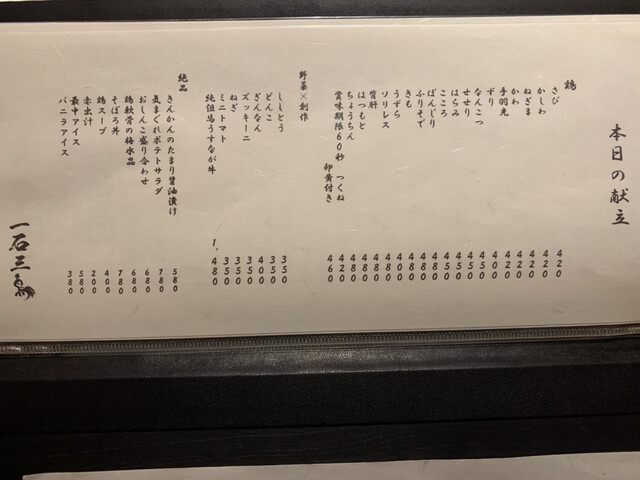 本日の献立
鶏
さび 420
かしわ 420
ねぎま 420
かわ 420
手羽先 420
ずり 400
なんこつ 450
せせり
はらみ
こころ
ぼんじり
ふりそで
きも
うずら
ソリレス
背肝
はつもと
ちょうちん
賞味期限60秒 つくね 420
卵黄付き 460
野菜×創作
ししとう 350
どんこ 350
ぎんなん 400
ズッキーニ 350
ねぎ 350
ミニトマト 350
純但馬うすなが牛 1,480
絶品
きんかんのたまり醤油漬け 580
気まぐれポテトサラダ 780
おしんこ盛り合わせ 680
鶏軟骨の梅水晶 680
そぼろ丼 780
鶏スープ 400
赤出汁 200
最中アイス 580
バニラアイス 380
一石三鳥